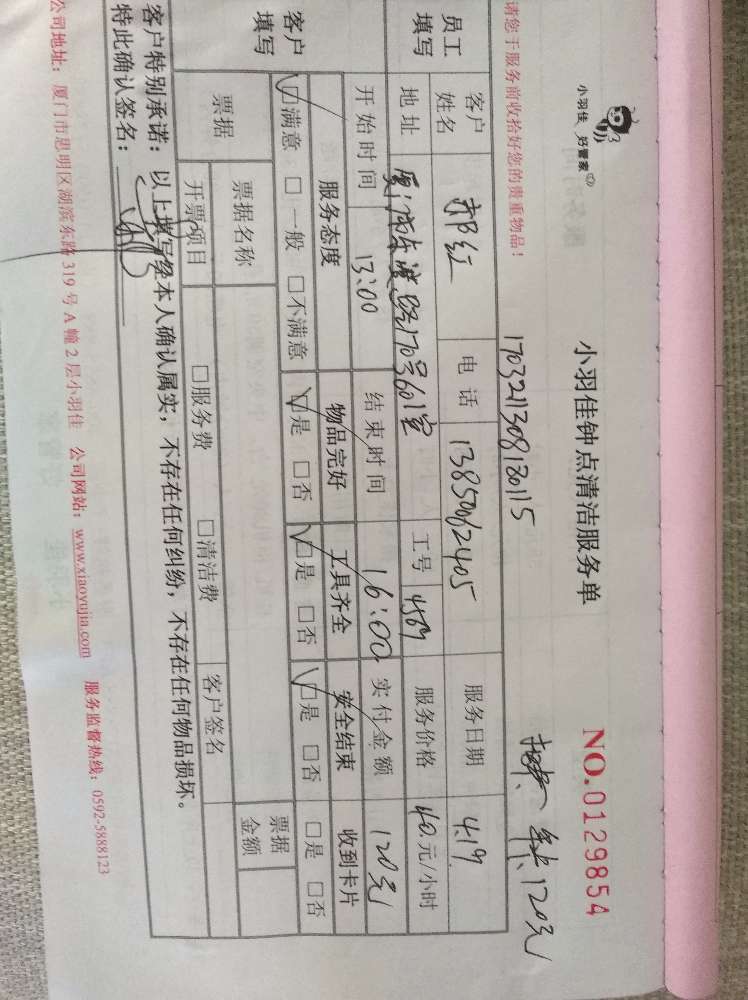 小羽佳 好管家
小羽佳钟点清洁服务单
NO.0129854
请您于服务前收拾好您的贵重物品！
1703211308180115
120元
员工填写
客户姓名 郝红 电话 13850062405 服务日期 4.19
地址 厦门市东渡路170号601室 工号 4569 服务价格 40.元/小时
开始时间 13:00 结束时间 16:00 实付金额 120元
客户填写
服务态度 物品完好 工具齐全 安全结束 收到卡片
☑满意 □一般 □不满意 ☑是 □否 ☑是 □否 ☑是 □否 □是 □否
票据 票据名称 票据金额
开票项目 □服务费 □清洁费 客户签名
客户特别承诺：以上填写经本人确认属实，不存在任何纠纷，不存在任何物品损坏。
特此确认签名：
公司地址：厦门市思明区湖滨东路319号A幢2层小羽佳 公司网站：www.xiaoyujia.com 服务监督热线：0592-5888123